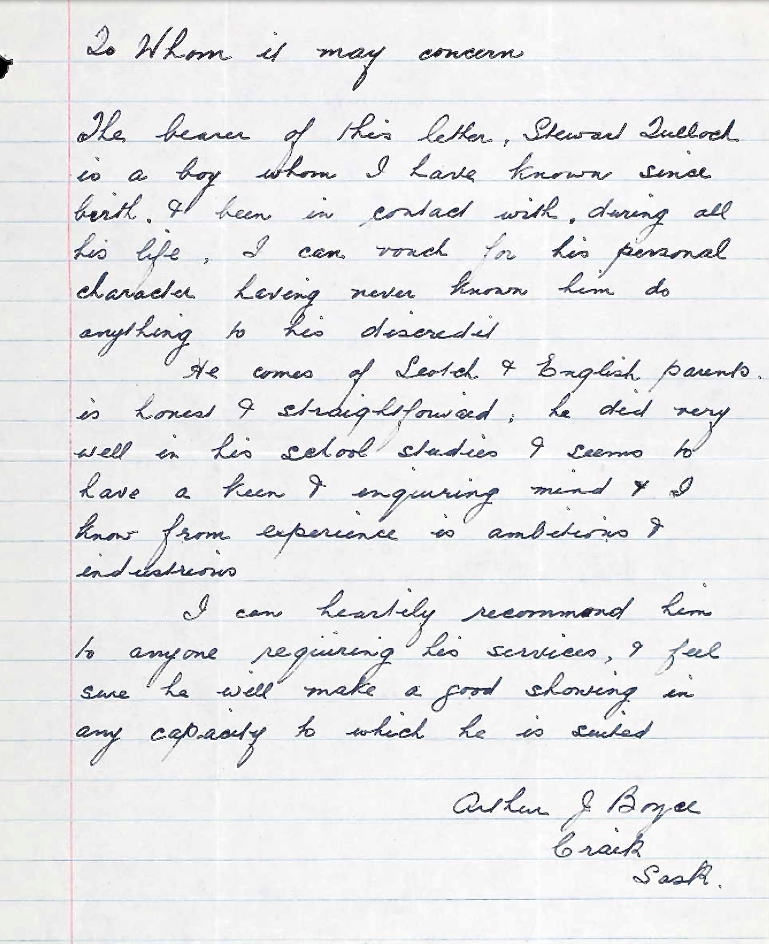 To Whom it may concern
The bearer of this letter, Stewart Tulloch
is a boy whom I have known since
birth, & been in contact with, during all
his life, I can vouch for his personal
character having never known him do
anything to his discredit
He comes of Scotch & English parents.
is honest & straightforward; he did very
well in his school studies & seems to
have a keen & enquiring mind & I
know from experience is ambitious &
industrious
I can heartily recommend him
to anyone requiring his services, & feel
sure he will make a good showing in
any capacity to which he is suited
Arthur J Boyce
Craik
Sask.